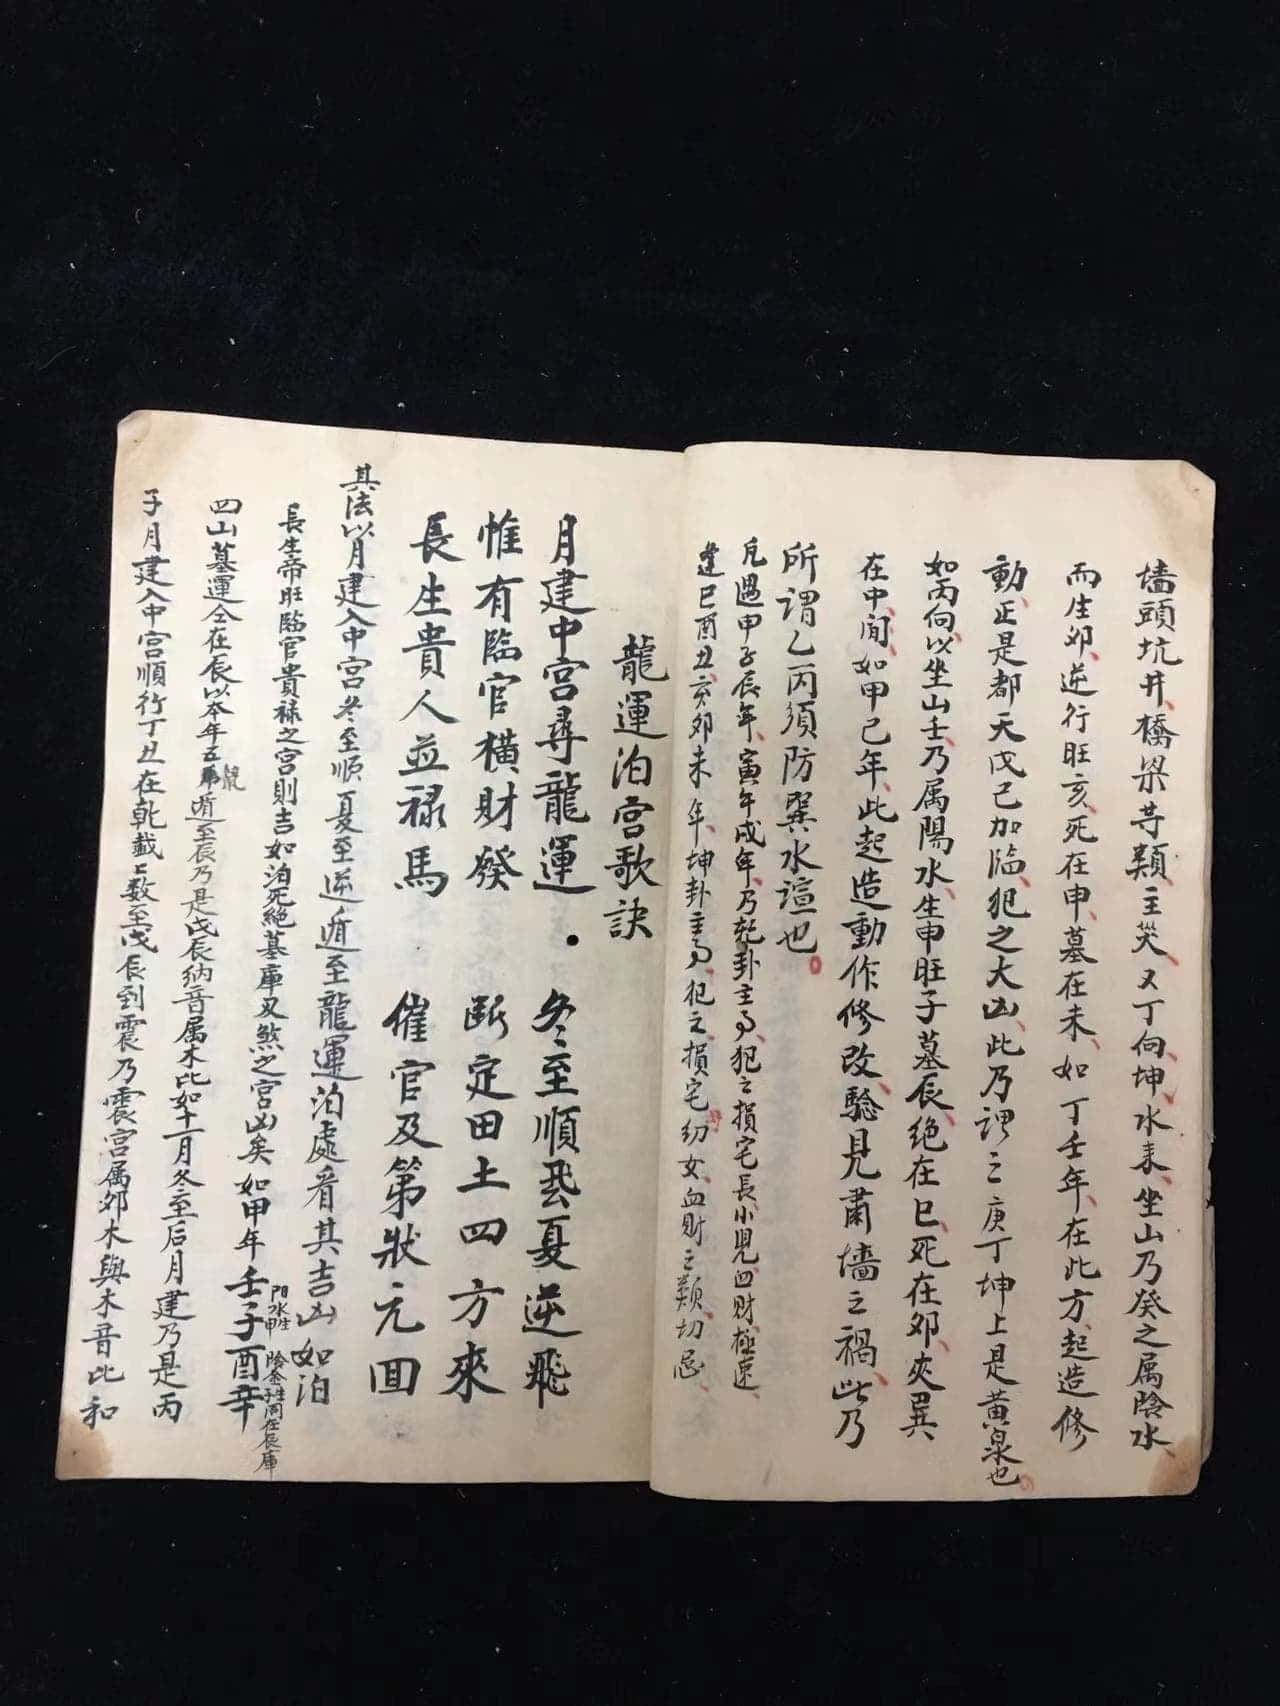 墻頭坑井、橋梁等類、主哭、又丁向、坤水来、坐山乃癸之属陰水、
而生卯、逆行旺亥、死在申、墓在未、如丁壬年、在此方、起造修
動、正是都天戊己加臨、犯之大凶、此乃謂之庚丁坤上是黄泉也
如丙向、以坐山壬、乃属陽水、生申旺子墓辰、绝在巳、死在卯、夾巽
在中间、如甲己年、此起造動作修改、驗見肅墻之禍、此乃
所谓乙丙須防巽水諠也
凡遇甲子辰年、寅午戌年、乃乾卦主事、犯之損宅長小児血财極速、
逢巳酉丑、亥卯未年、坤卦主事、犯之損宅幼女、血财之類、切忌
龍運泊宫歌訣
月建中宫尋龍運 冬至順飛夏逆飛
惟有臨官橫財發 斷定田土四方來
長生貴人並禄馬 催官及第狀元回
其法以月建入中宫冬至順夏至逆遁至龍運泊處看其吉凶如泊
長生帝旺臨官貴禄之宫則吉如泊死絕墓庫刃煞之宫凶矣如甲年壬子酉辛
陽水生申 陰金生子同在辰庫
四山墓運仝在辰以本年五鼠遁至辰乃是戊辰納音属木比如十一月冬至后月建乃是丙
子月建入中宫順行丁丑在乾載上数至戊辰到震乃震宫属卯木與木音比和